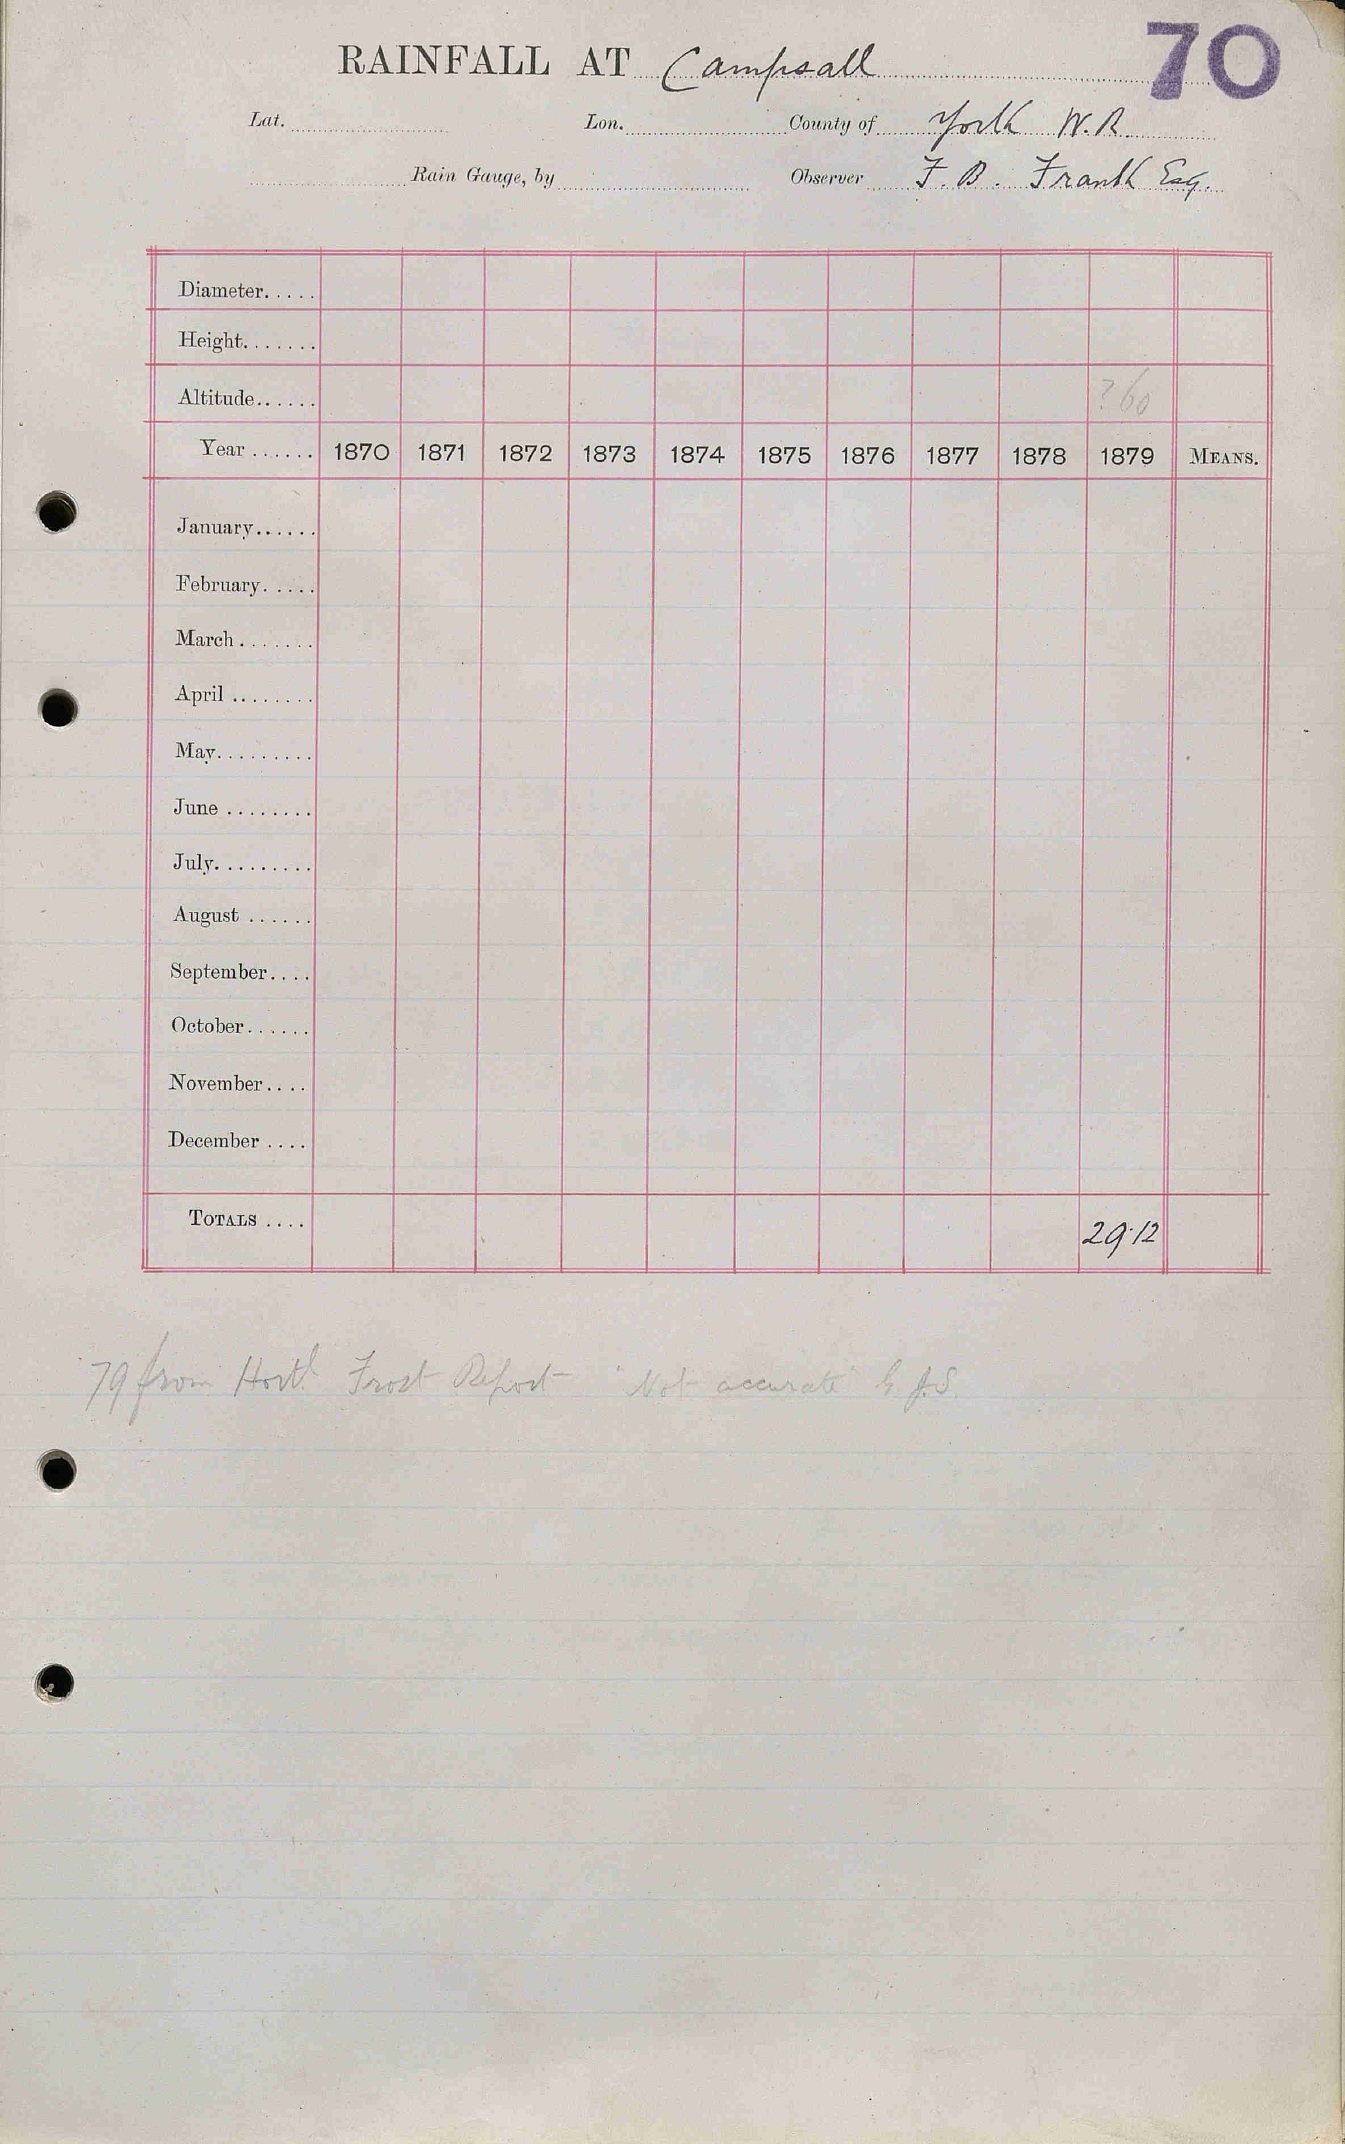 RAINFALL AT Campsall 70
Lat. Lon. County of York W.R.
Rain Gauge, by Observer F. B. Frank Esq.
Diameter.....
Height.......
Altitude...... ?60
Year ...... 1870 1871 1872 1873 1874 1875 1876 1877 1878 1879 MEANS.
January......
February.....
March.......
April ........
May.........
June ........
July.........
August ......
September....
October......
November....
December ....
TOTALS .... 29.12
79 from Hortl Frost Report "Not accurate" G.J.S.